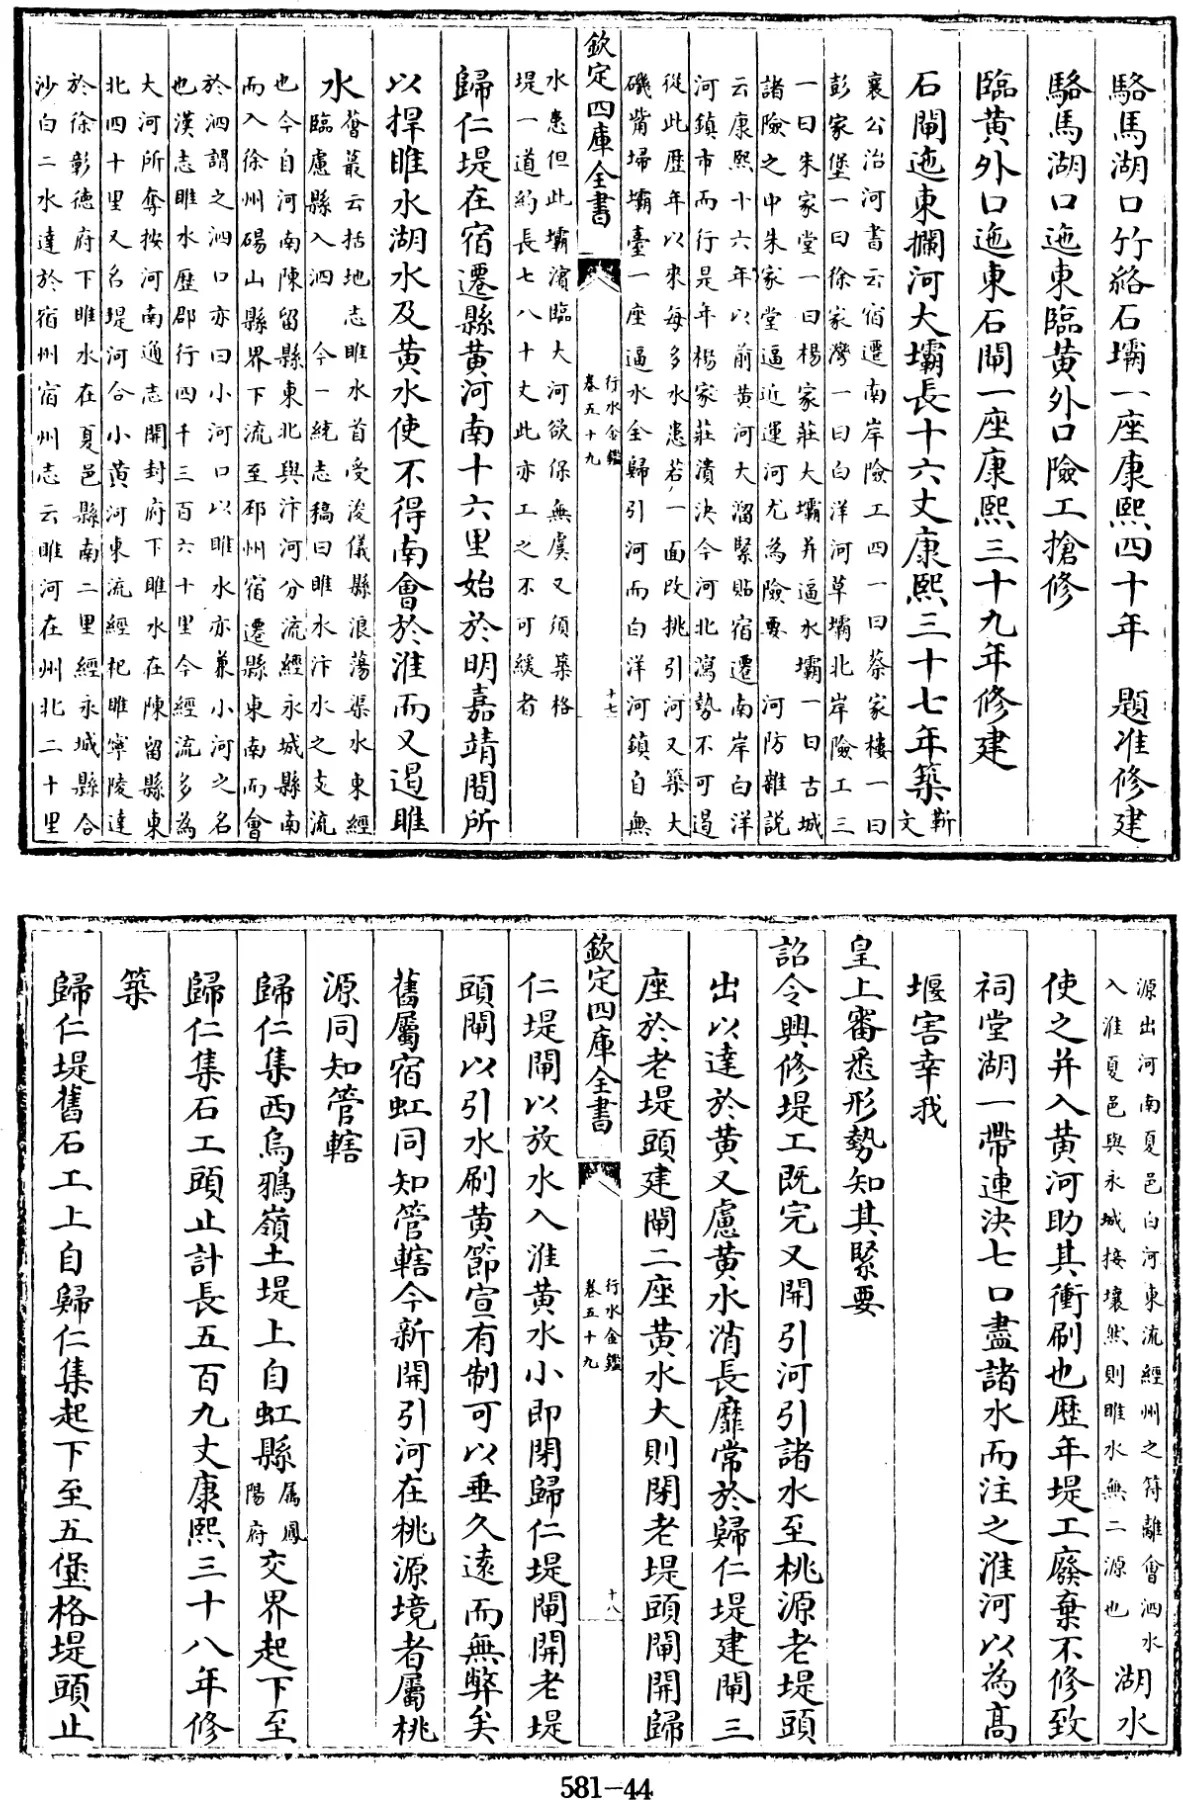 駱馬湖口竹絡石壩一座康熙四十年　題准修建
駱馬湖口迤東臨黃外口險工搶修
臨黃外口迤東石閘一座康熙三十九年修建
石閘迤東攔河大壩長十六丈康熙三十七年築靳文
襄公治河書云宿遷南岸險工四一曰蔡家樓一曰
彭家堡一曰徐家灣一曰白洋河草壩北岸險工三
一曰朱家堂一曰楊家莊大壩并逼水壩一曰古城
諸險之中朱家堂逼近運河尤為險要　河防雜說
云康熙十六年以前黃河大溜緊貼宿遷南岸白洋
河鎮市而行是年楊家莊潰決今河北瀉勢不可遏
從此歷年以來每多水患若一面改挑引河又築大
磯觜埽壩臺一座逼水全歸引河而白洋河鎮自無
欽定四庫全書
行水金鑑
卷五十九
十七
水患但此壩濱臨大河欲保無虞又須築格
堤一道約長七八十丈此亦工之不可緩者
歸仁堤在宿遷縣黃河南十六里始於明嘉靖間所
以捍睢水湖水及黃水使不得南會於淮而又遏睢
水薈蕞云括地志睢水首受浚儀縣浪蕩渠水東經
臨慮縣入泗　今一統志稿曰睢水汴水之支流
也今自河南陳留縣東北與汴河分流經永城縣南
而入徐州碭山縣界下流至邳州宿遷縣東南而會
於泗謂之泗口亦曰小河口以睢水亦兼小河之名
也漢志睢水歷郡行四千三百六十里今經流多為
大河所奪按河南通志開封府下睢水在陳留縣東
北四十里又名堤河合小黃河東流經杞睢寧陵達
於徐彰德府下睢水在夏邑縣南二里經永城縣合
沙白二水達於宿州宿州志云睢河在州北二十里
源出河南夏邑白河東流經州之符離會泗水
入淮夏邑與永城接壤然則睢水無二源也
湖水
使之并入黃河助其衝刷也歷年堤工廢棄不修致
祠堂湖一帶連決七口盡諸水而注之淮河以為高
堰害幸我
皇上審悉形勢知其緊要
詔令興修堤工既完又開引河引諸水至桃源老堤頭
出以達於黃又慮黃水消長靡常於歸仁堤建閘三
座於老堤頭建閘二座黃水大則閉老堤頭閘開歸
欽定四庫全書
行水金鑑
卷五十九
十八
仁堤閘以放水入淮黃水小即閉歸仁堤閘開老堤
頭閘以引水刷黃節宣有制可以垂久遠而無弊矣
舊屬宿虹同知管轄今新開引河在桃源境者屬桃
源同知管轄
歸仁集西烏鴉嶺土堤上自虹縣屬鳳陽府交界起下至
歸仁集石工頭止計長五百九丈康熙三十八年修
築
歸仁堤舊石工上自歸仁集起下至五堡格堤頭止
581-44